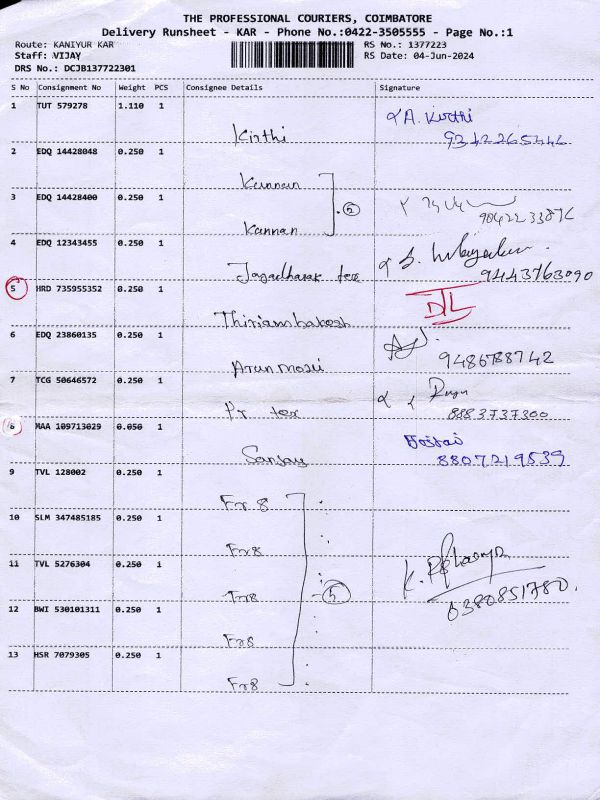 THE PROFESSIONAL COURIERS, COIMBATORE
Delivery Runsheet - KAR - Phone No.:0422-3505555 - Page No.:1
Route: KANIYUR KAR RS No.: 1377223
Staff: VIJAY RS Date: 04-Jun-2024
DRS No.: DCJB137722301
S No Consignment No Weight PCS Consignee Details Signature
1 TUT 579278 1.110 1
Kirthi A. Kirthi
9342265446
2 EDQ 14428048 0.250 1
Kannan
3 EDQ 14428400 0.250 1
2
Kannan
4 EDQ 12343455 0.250 1
tex
9443763090
5 HRD 735955352 0.250 1
DTL
6 EDQ 23860135 0.250 1
Arun
9486788742
7 TCG 50646572 0.250 1
Pr tex
8883737300
8 MAA 109713029 0.050 1
Sanjay
8807219539
9 TVL 128002 0.250 1
Fr8
10 SLM 347485185 0.250 1
Fr8
11 TVL 5276304 0.250 1
Fr8 5
K.
12 BWI 530101311 0.250 1
Fr8
13 HSR 7079305 0.250 1
Fr8